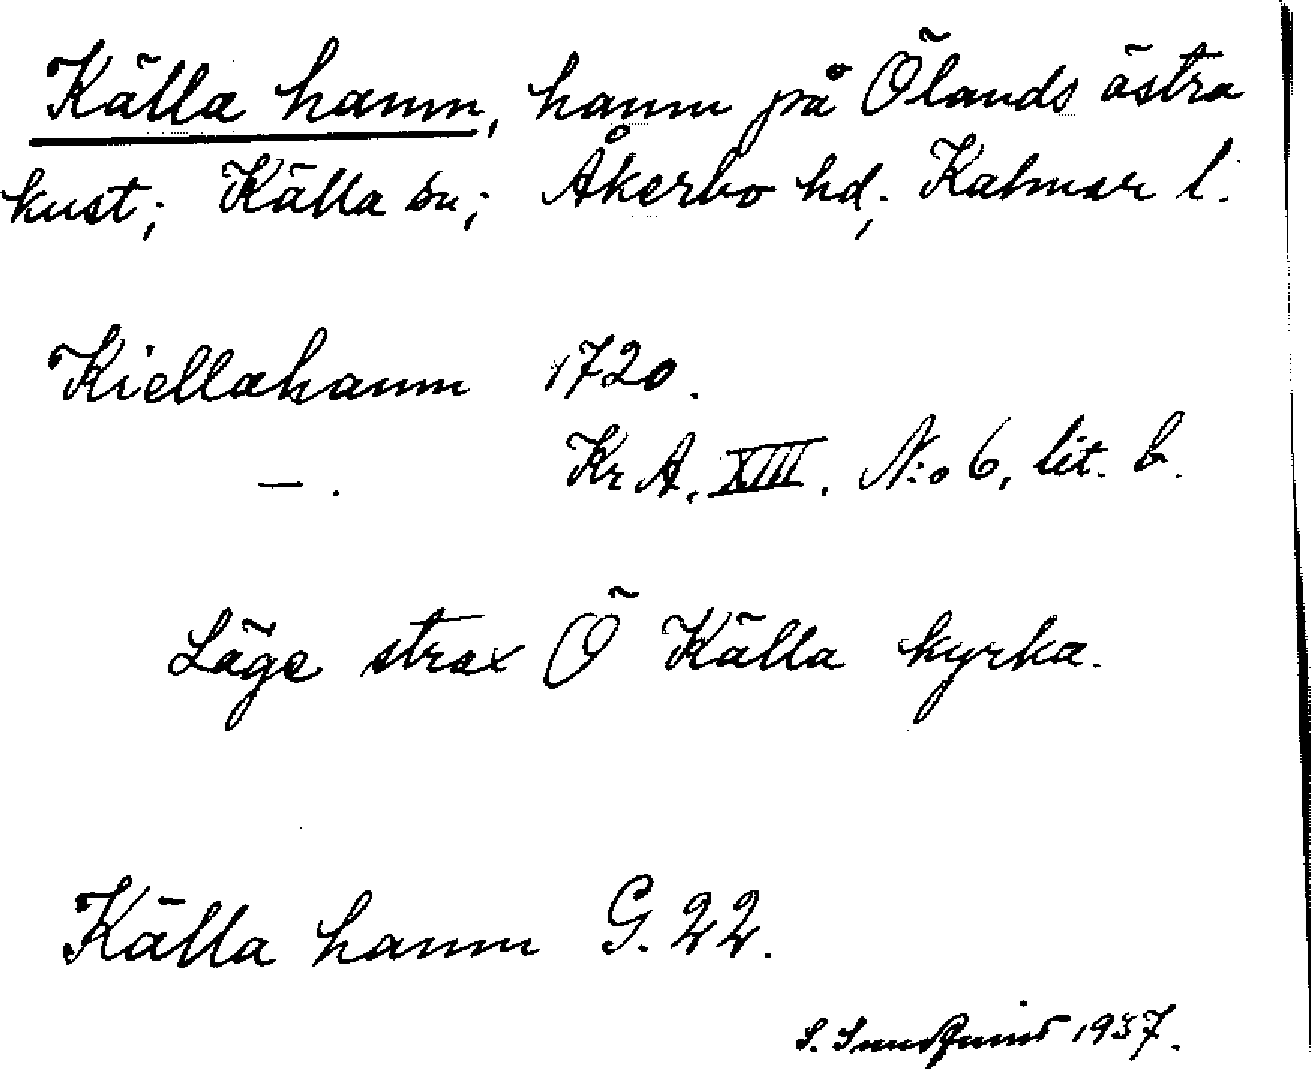 Källa hamn, hamn på Ölands östra
kust; Källa sn; Åkerbo hd; Kalmar l.
Kiellahamn 1720.
—. Kr A. XIII. N:o 6, lit. b.
Läge strax Ö Källa kyrka.
Källa hamn G. 22.
S. Sundquist 1937.